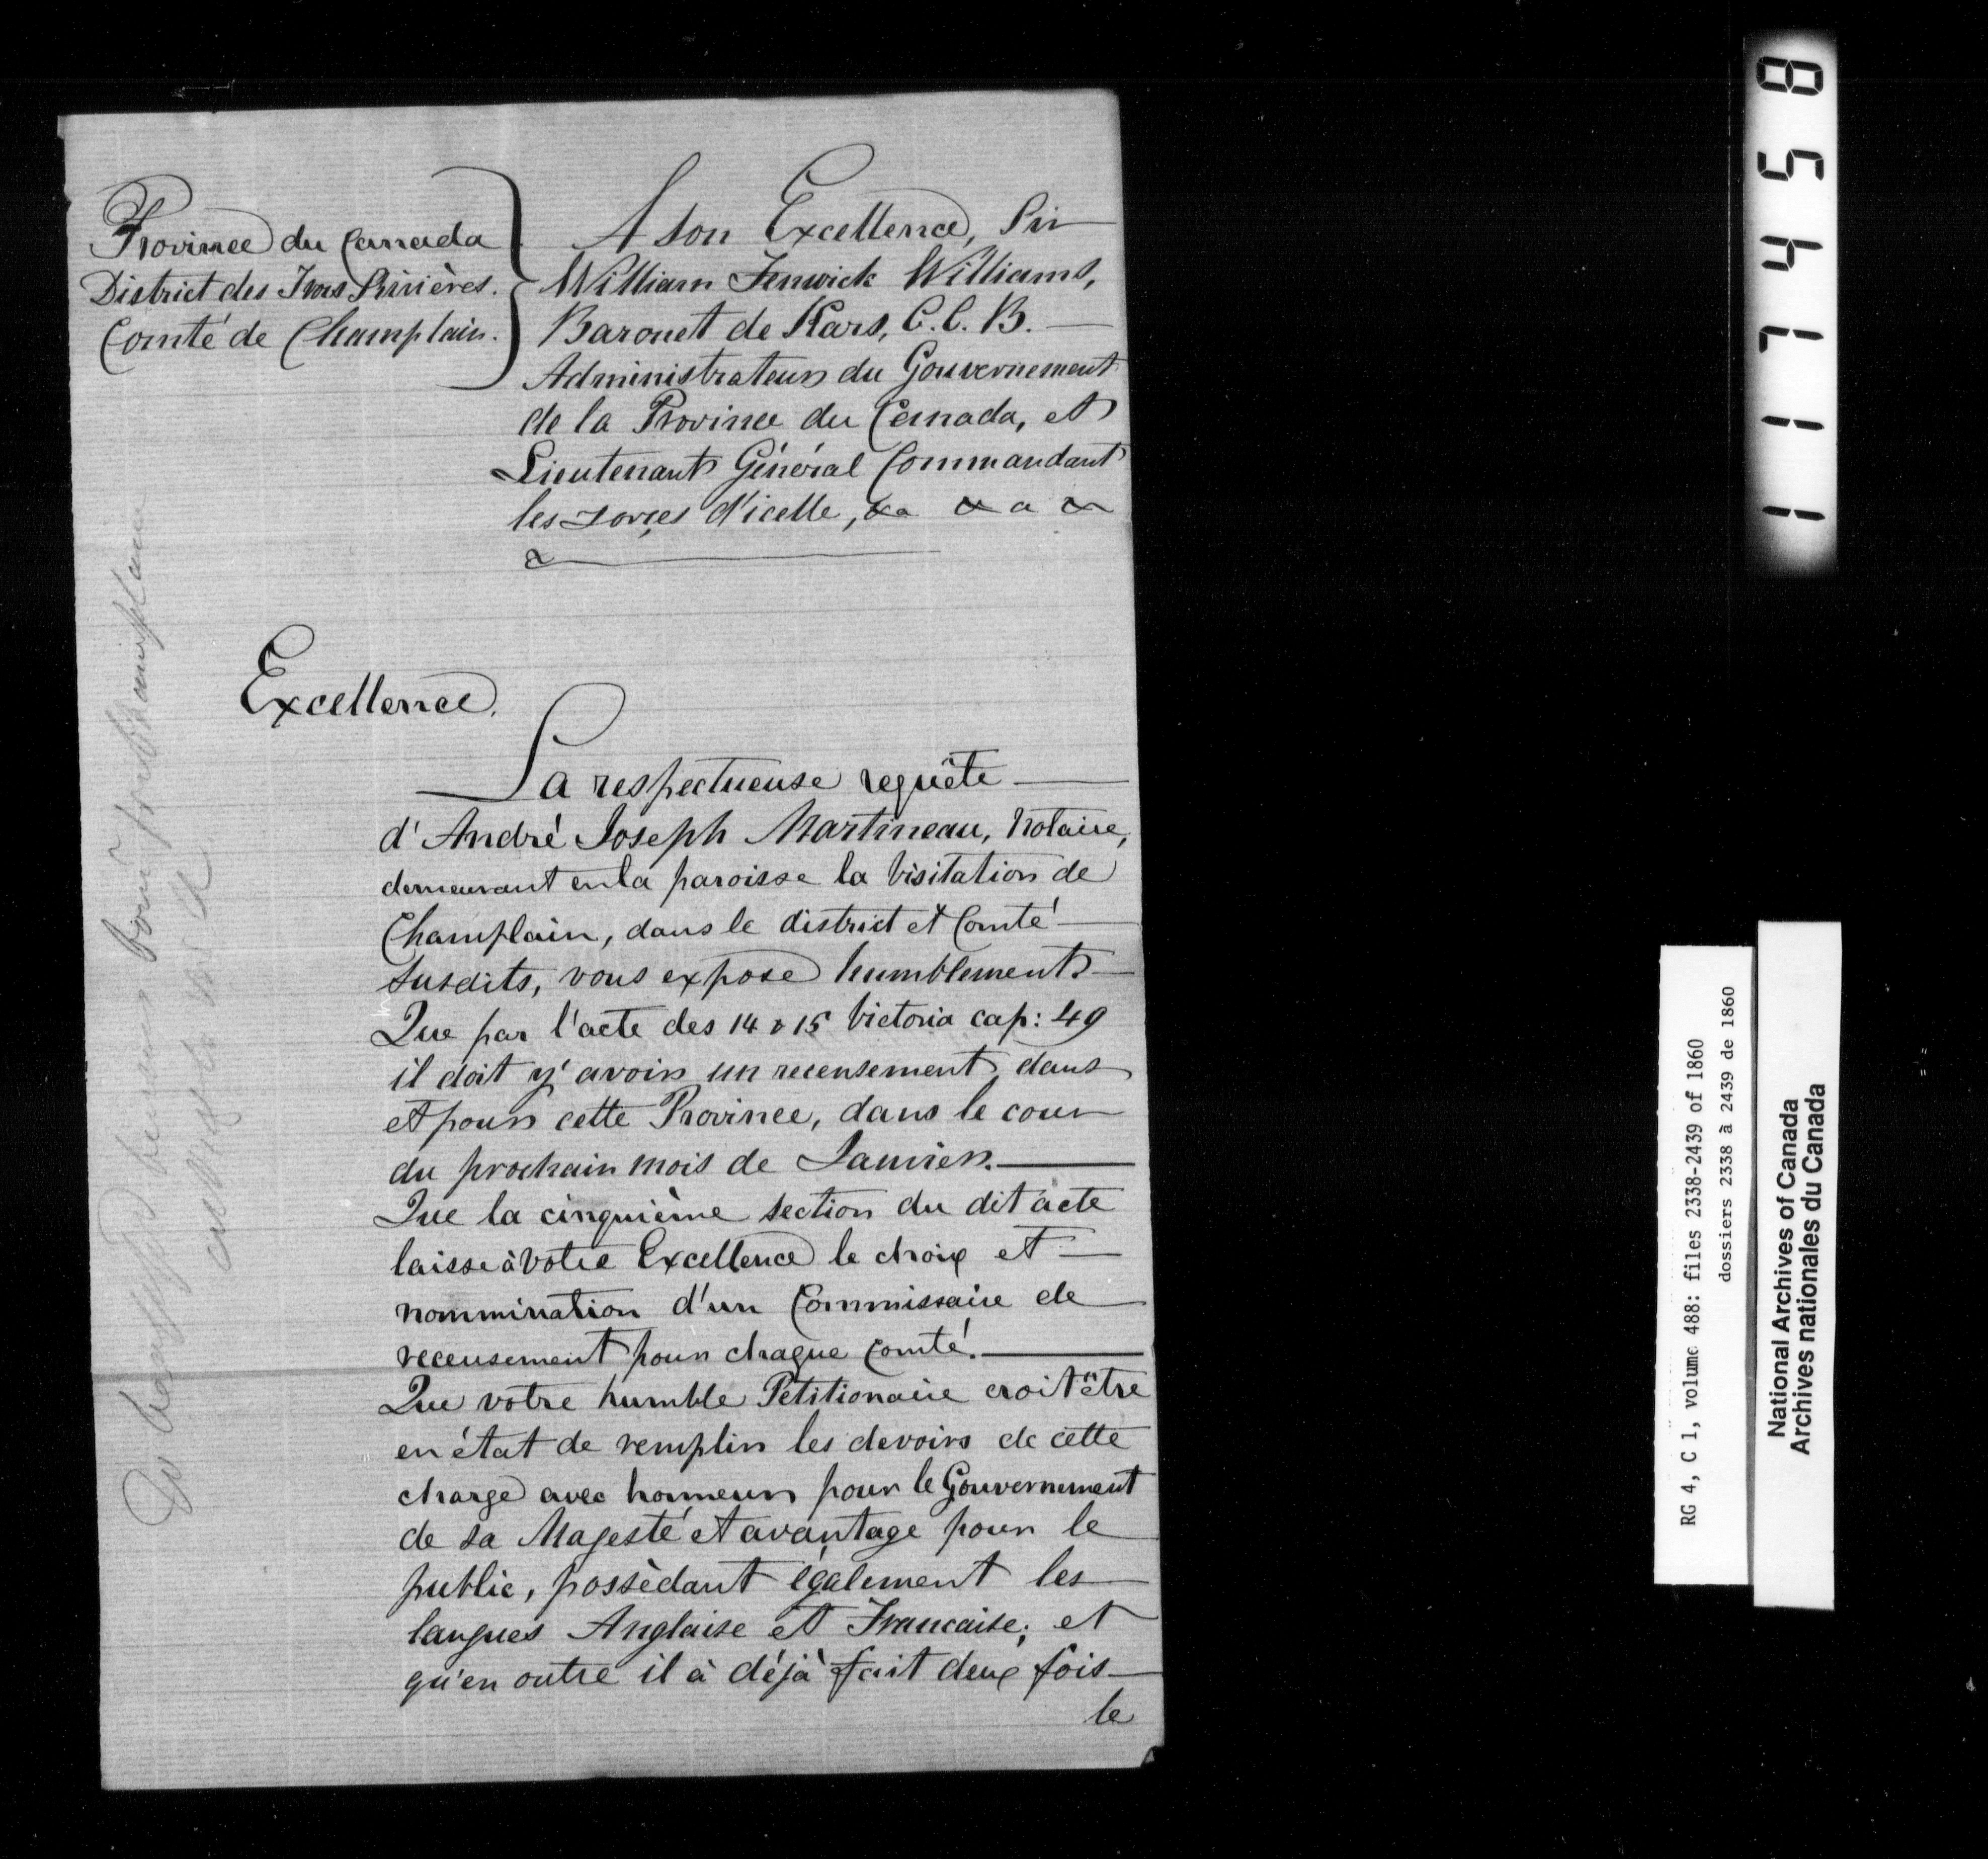 Province du Canada
District des Trois Rivières.
Comté de Champlain.
A Son Excellence, Sir
William Fenwick Williams,
Baronet de Kars, C.C.B.
Administrateur du Gouvernement
de la Province du Canada, et
Lieutenant Général Commandant
les Forces d'icelle, &a &a &
&
Excellence.
La respectueuse requête
d'André Joseph Martineau, Notaire,
demeurant en la paroisse la Visitation de
Champlain, dans le district et Comté
susdits, vous expose humblement
Que par l'acte des 14 & 15 Victoria cap: 49
il doit y avoir un recensement dans
et pour cette Province, dans le cour
du prochain mois de Janvier.
Que la cinquième section du dit acte
laisse à Votre Excellence le choix et
nommination d'un Commissaire de
recensement pour chaque Comté.
Que votre humble Pétitionaire croit être
en état de remplir les devoirs de cette
charge avec honneur pour le Gouvernement
de sa Magesté et avantage pour le
public, possèdant également les
langues Anglaise et Francaise; et
qu'en outre il à déjà fait deux fois
le
1117458
RG 4, C 1, volume 488: files 2338-2439 of 1860
dossiers 2338 à 2439 de 1860
National Archives of Canada
Archives nationales du Canada